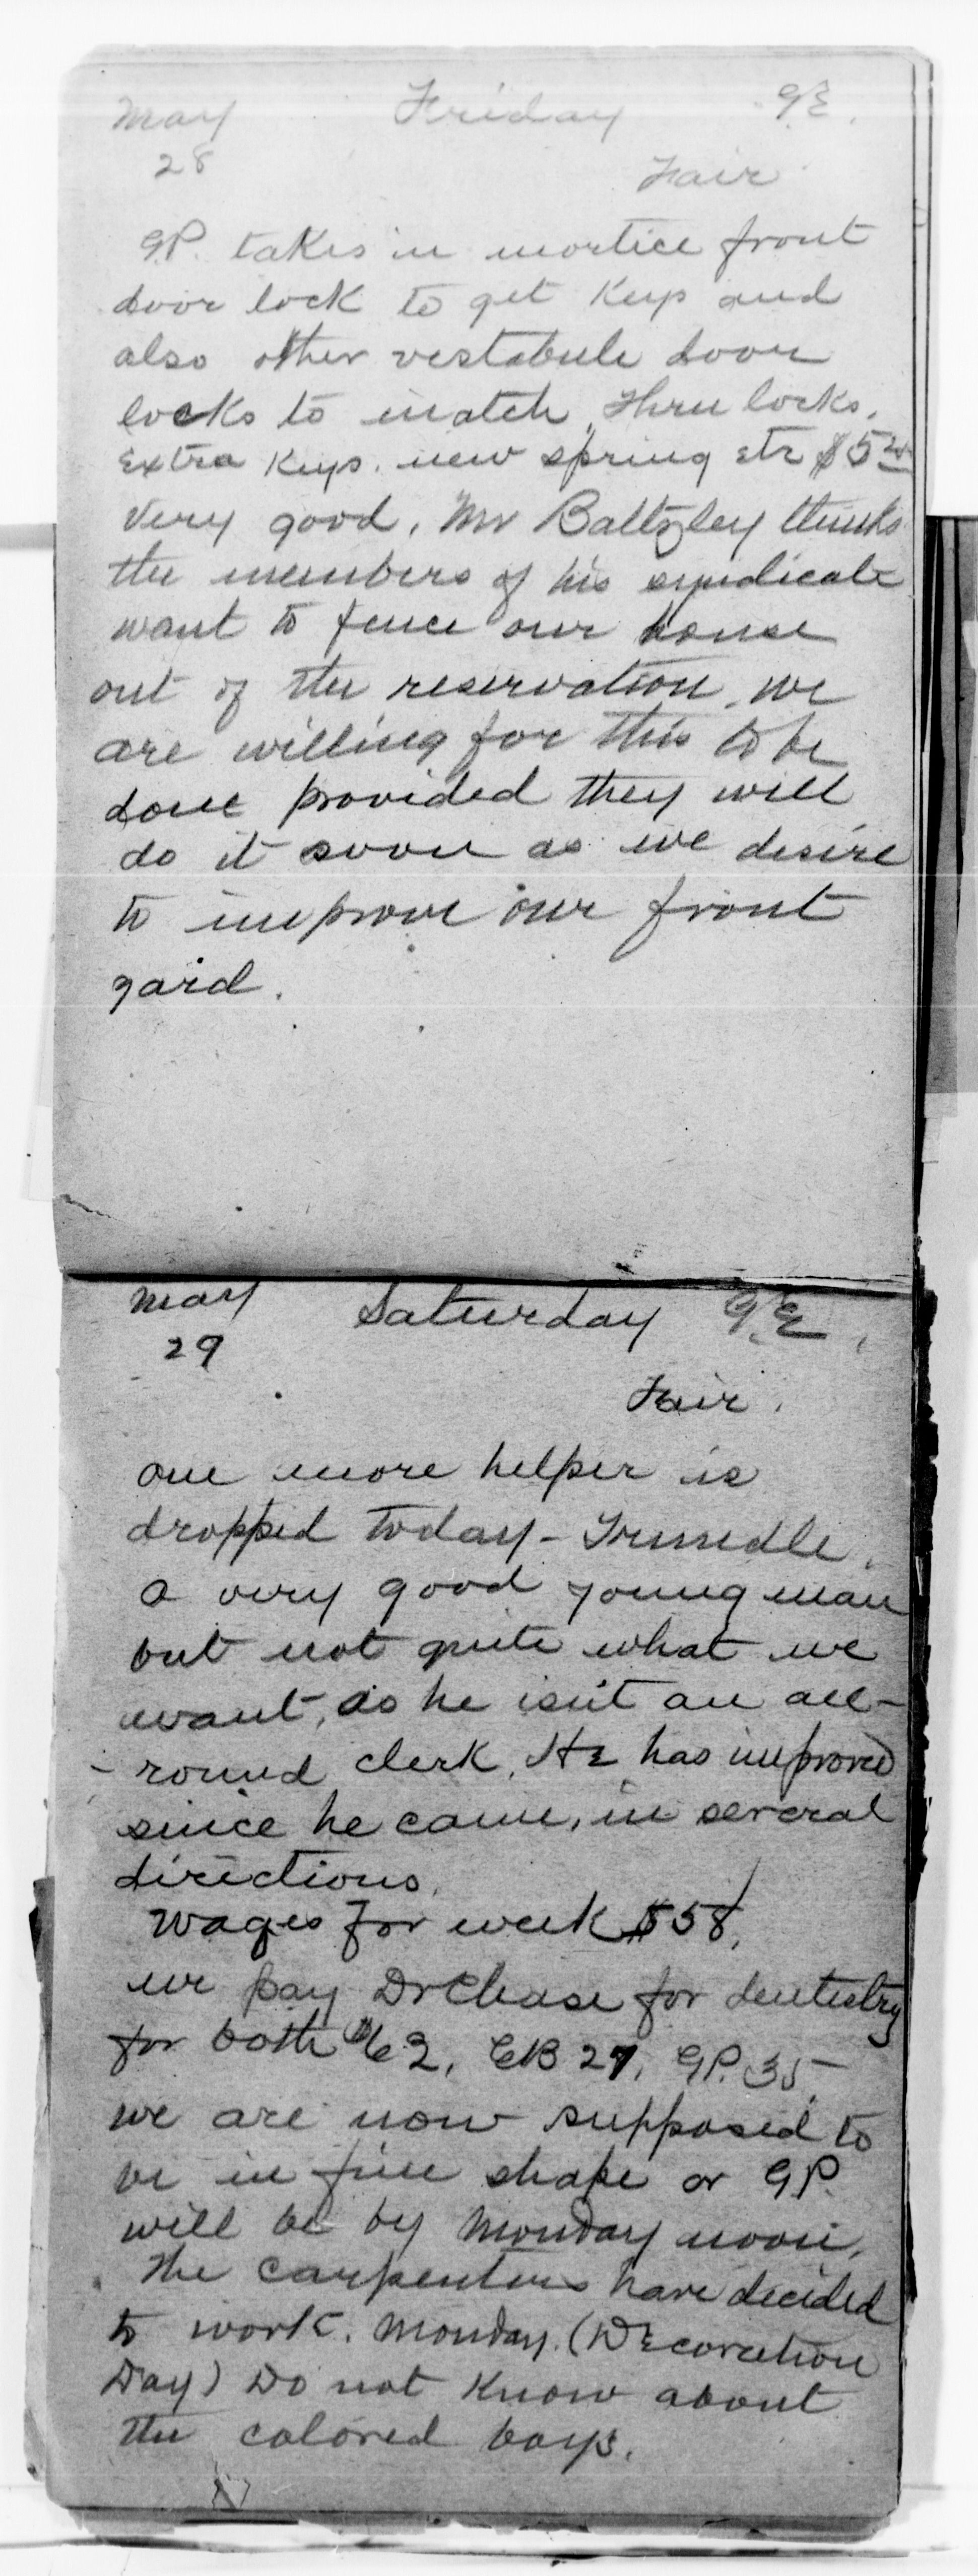 May Friday G.E.
28
Fair
G.P. takes in mortice front
door lock to get keys and
also other vestabule door
locks to match. Three locks.
Extra keys. new spring etc
Very good. Mr Baltzley thinks
the members of his syndicate
want to fence our house
out of the reservation. we
are willing for this to be
done provided they will
do it soon as we desire
to improve our front
yard.
May Saturday G.E.
29
Fair.
one more helper is
dropped today - Trundle.
a very good young man
but not quite what we
want, as he isn't an all-
-round clerk. He has improved
since he came, in several
directions.
Wages for week $58.
we pay Dr Chase for dentistry
for both $62, CB 27, G.P. 35.
we are now supposed to
be in fine shape or G.P.
will be by Monday noon.
The carpenters have decided
to work. Monday. (Decoration
Day) Do not know about
the colored boys.